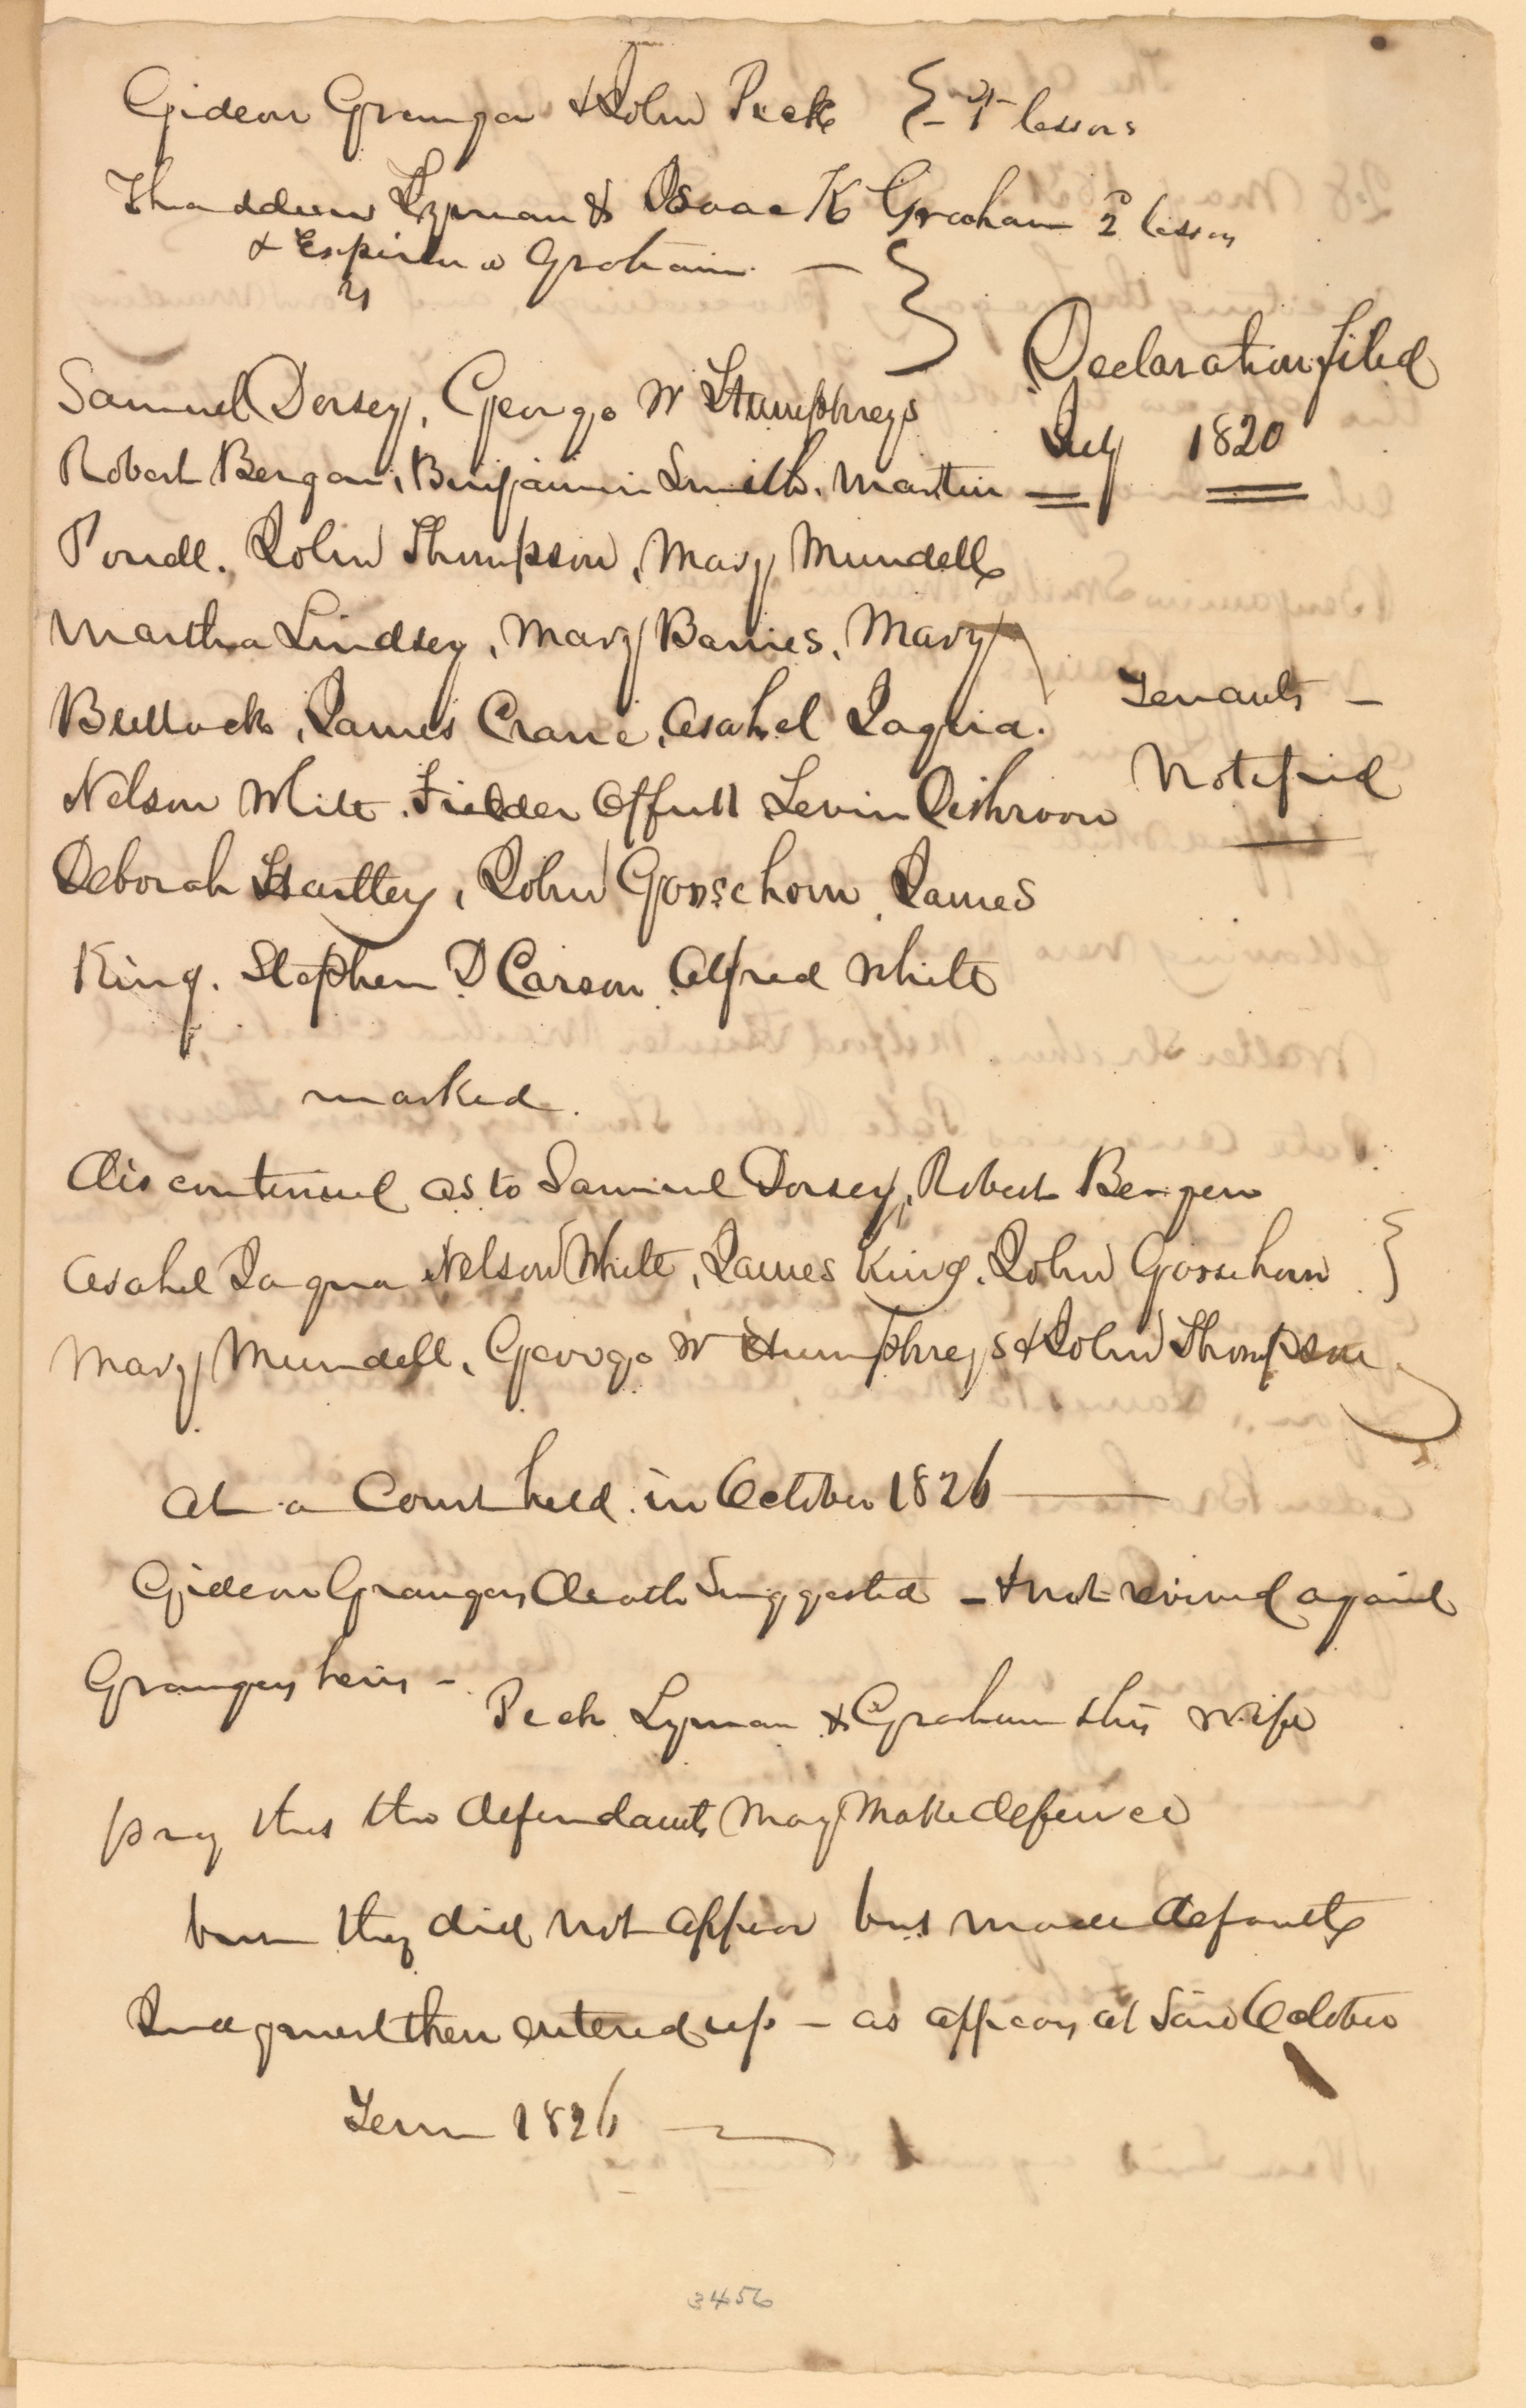 Gideon Granger & John Peck } - 1st lessors
Thaddeus Lyman & Isaac K Graham 2d lessors
& Graham. —
vs
Declaration filed
Samuel Dorsey, George W Humphreys
July 1820
Robert Bergan, Benjamin Smith, Martin
Powell, John Thompson, Mary Mundell
Martha Lindsey, Mary Barnes, Mary
Tenants —
Bullock, James Crane, Asahel Jaqua.
Notified
Nelson White. Fielder Offutt Levin Dishroon
Deborah Hartley, John Gooschorn, James
King. Stephen D Carson Alfred White
marked.
discontinued as to Samuel Dorsey, Robert Bergen
Asahel Jaqua Nelson White, James King, John Goosehorn }
Mary Mundell, George W Humphreys & John Thompson
At a Court held in October 1826 —
Gideon Grangers death Suggested — & not revived against
Grangers heirs —
Peck Lyman & Graham & his wife
pray that the defendants may make defence
but they did not appear but made default
Judgment then entered up — as appears at Said October
Term 1826 —
3456